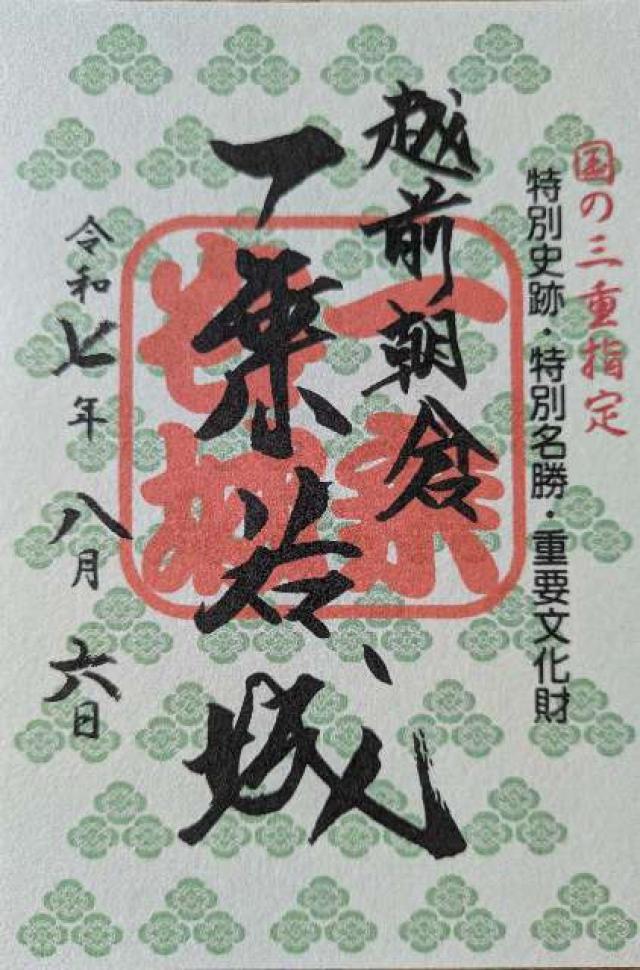 国の三重指定
特別史跡・特別名勝・重要文化財
越前朝倉
一乗谷城
令和七年八月六日